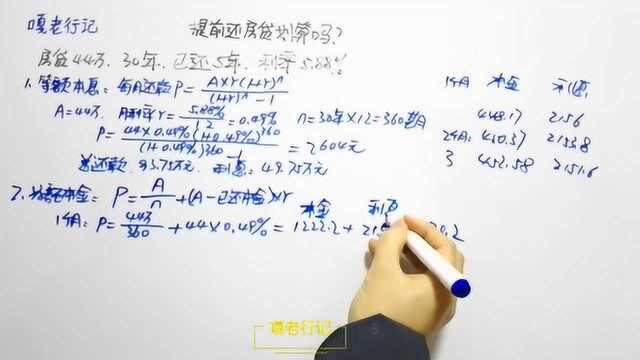 嘎老行记
提前还房贷划算吗?
房贷44万、30年、已还5年、利率5.88%
1.等额本息:每月还款P=A×r(1+r)^n/(1+r)^n-1
1个月 本金 利息
448.17 2156
A=44万 月利率r=5.88%/12=0.49% n=30年×12=360个月
2个月: 450.37 2153.8
P=44×0.49%(1+0.49%)^360/(1+0.49%)^360-1=2604元
3 452.58 2151.6
总还款:93.75万元、利息:49.75万元
2.等额本金:P=A/n+(A-已还本金)×r
本金 利息
1个月:P=44万/360+44×0.49%=1222.2+
嘎老行记